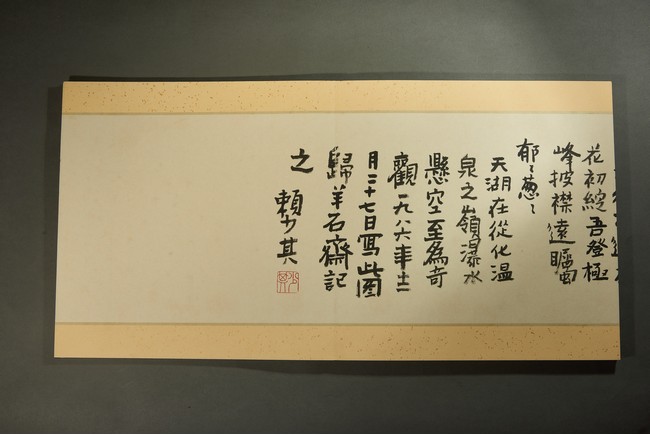 花初綻吾登極
峰披襟遠矚
郁〻葱〻
天湖在從化温
泉之嶺瀑水
懸空至為奇
觀一九八六年十二
月二十七日寫此圖
歸羊石齋記
之 賴少其